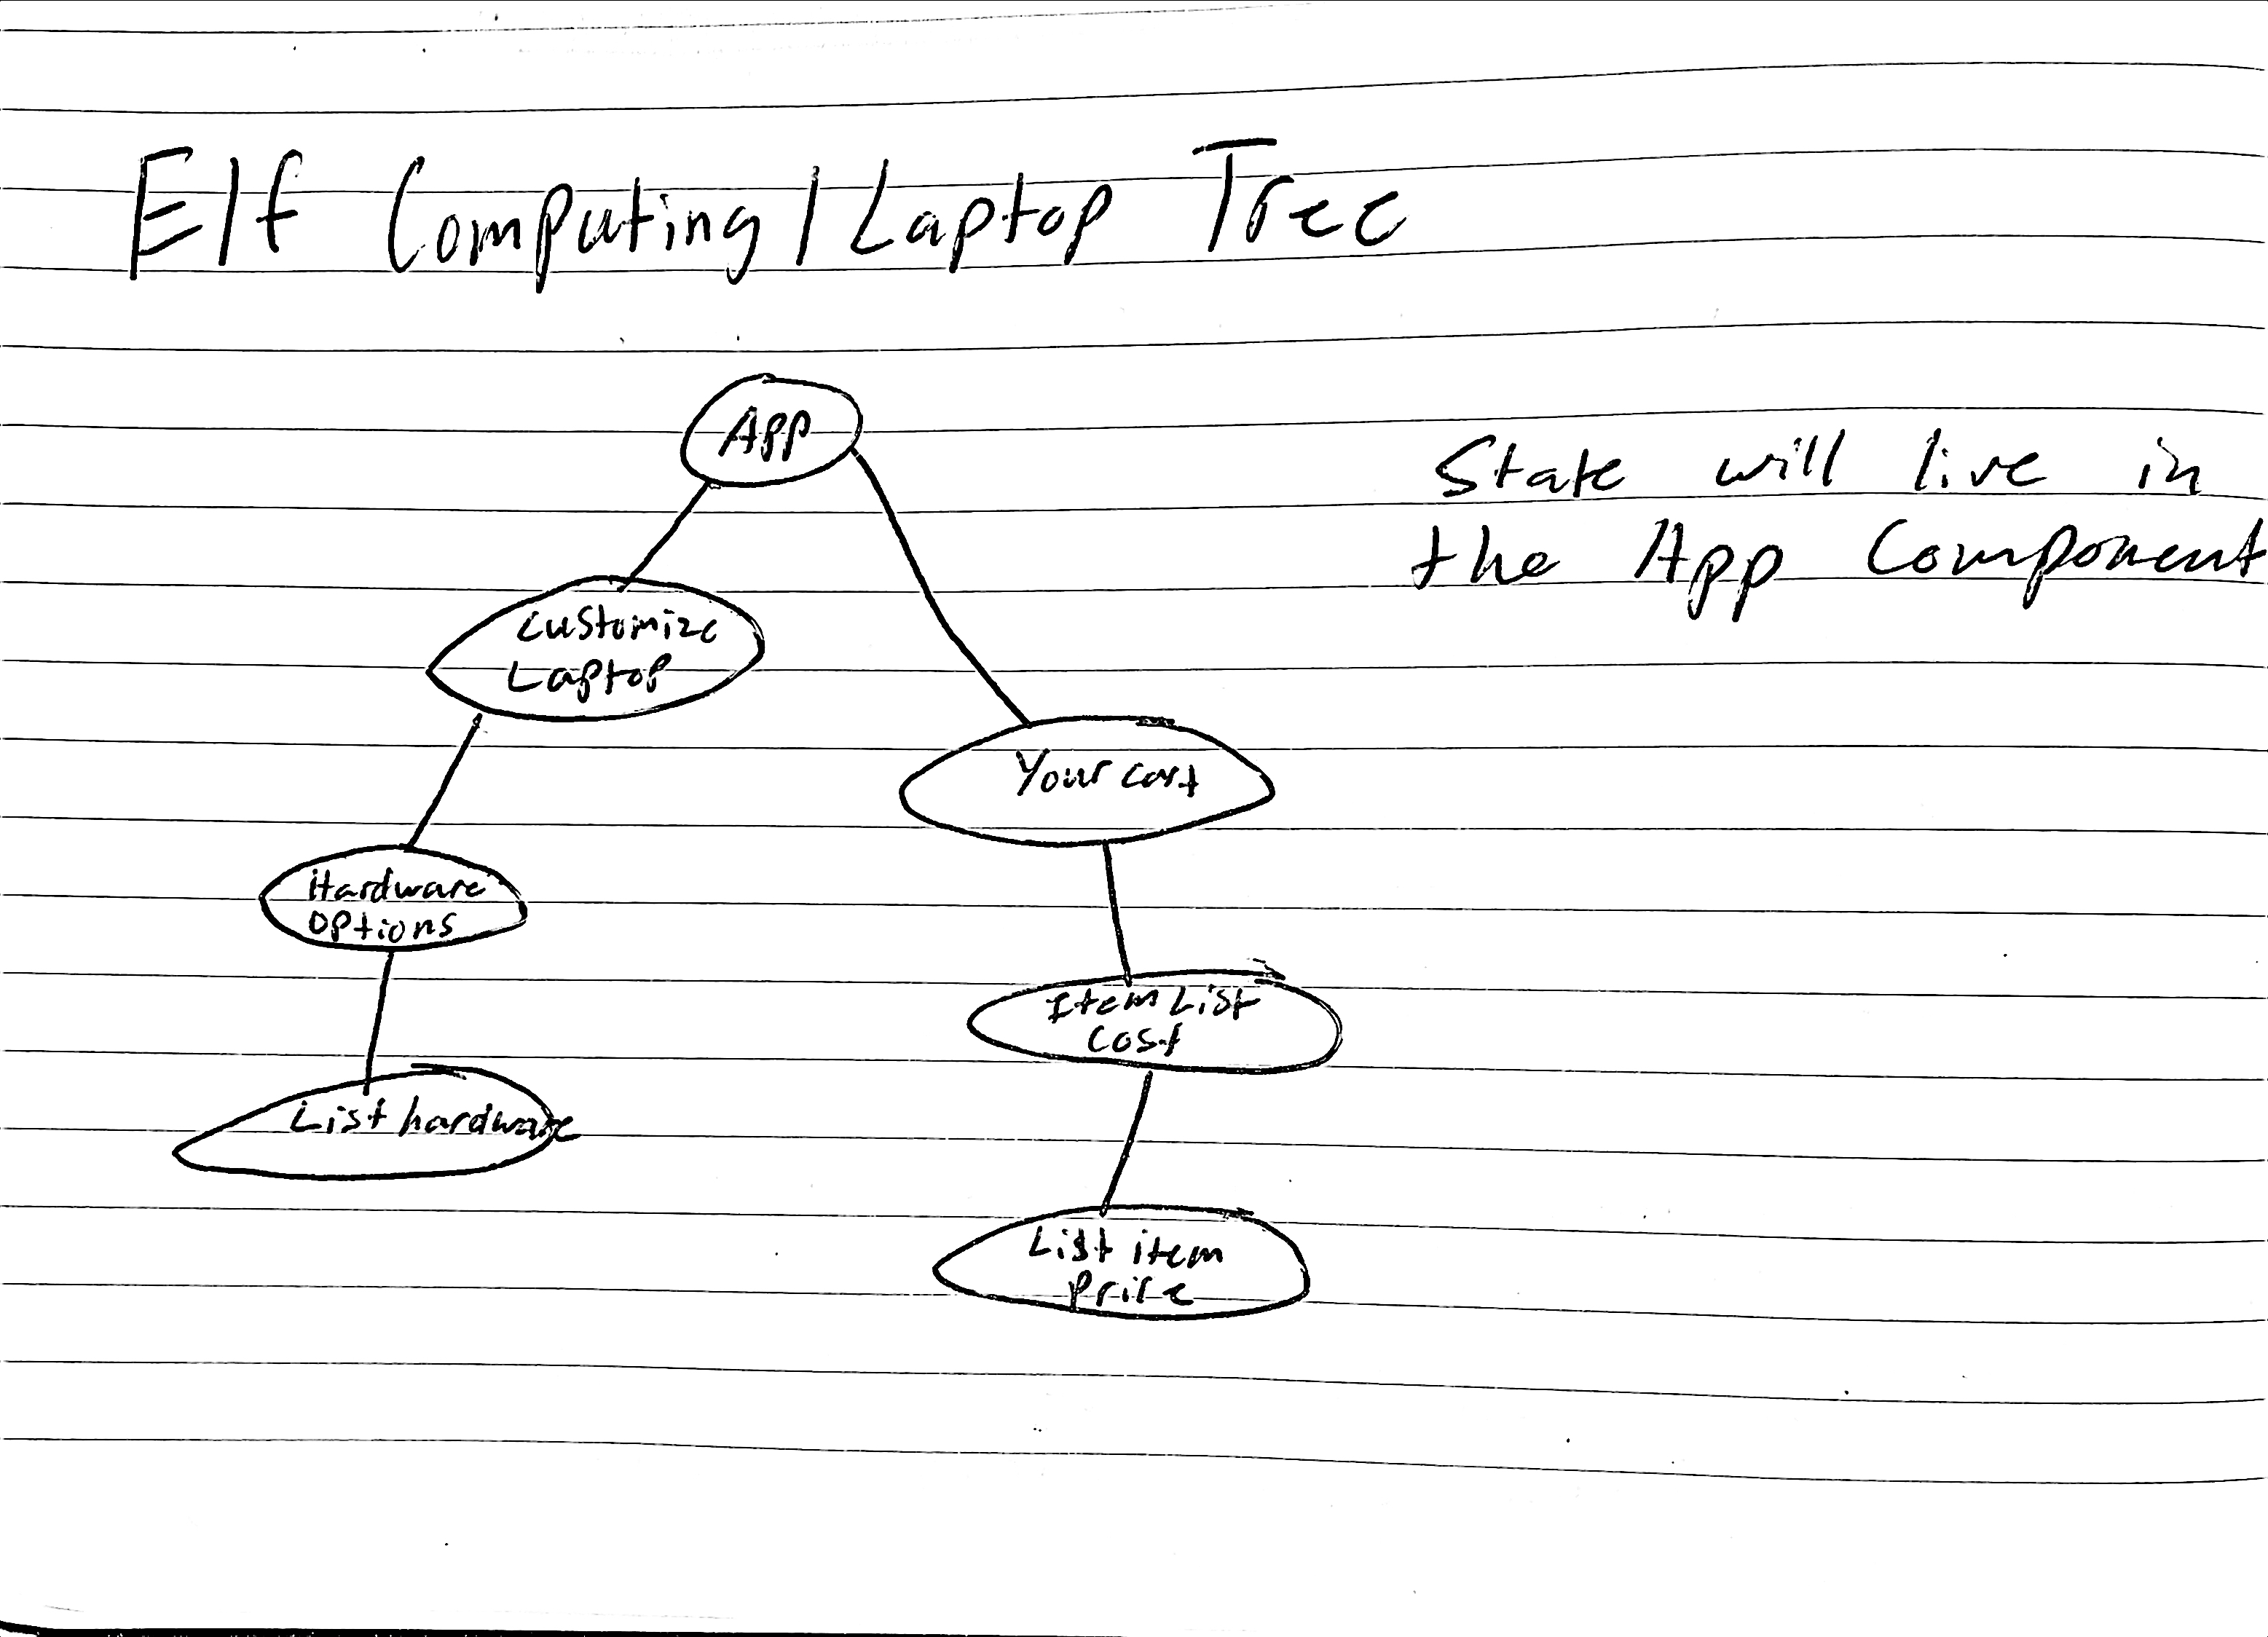 Elf Computing/Laptop Tree
App
State will live in
the App Component
Customize
Laptop
Your cart
Hardware
options
Item List
Cost
List hardware
List item
price